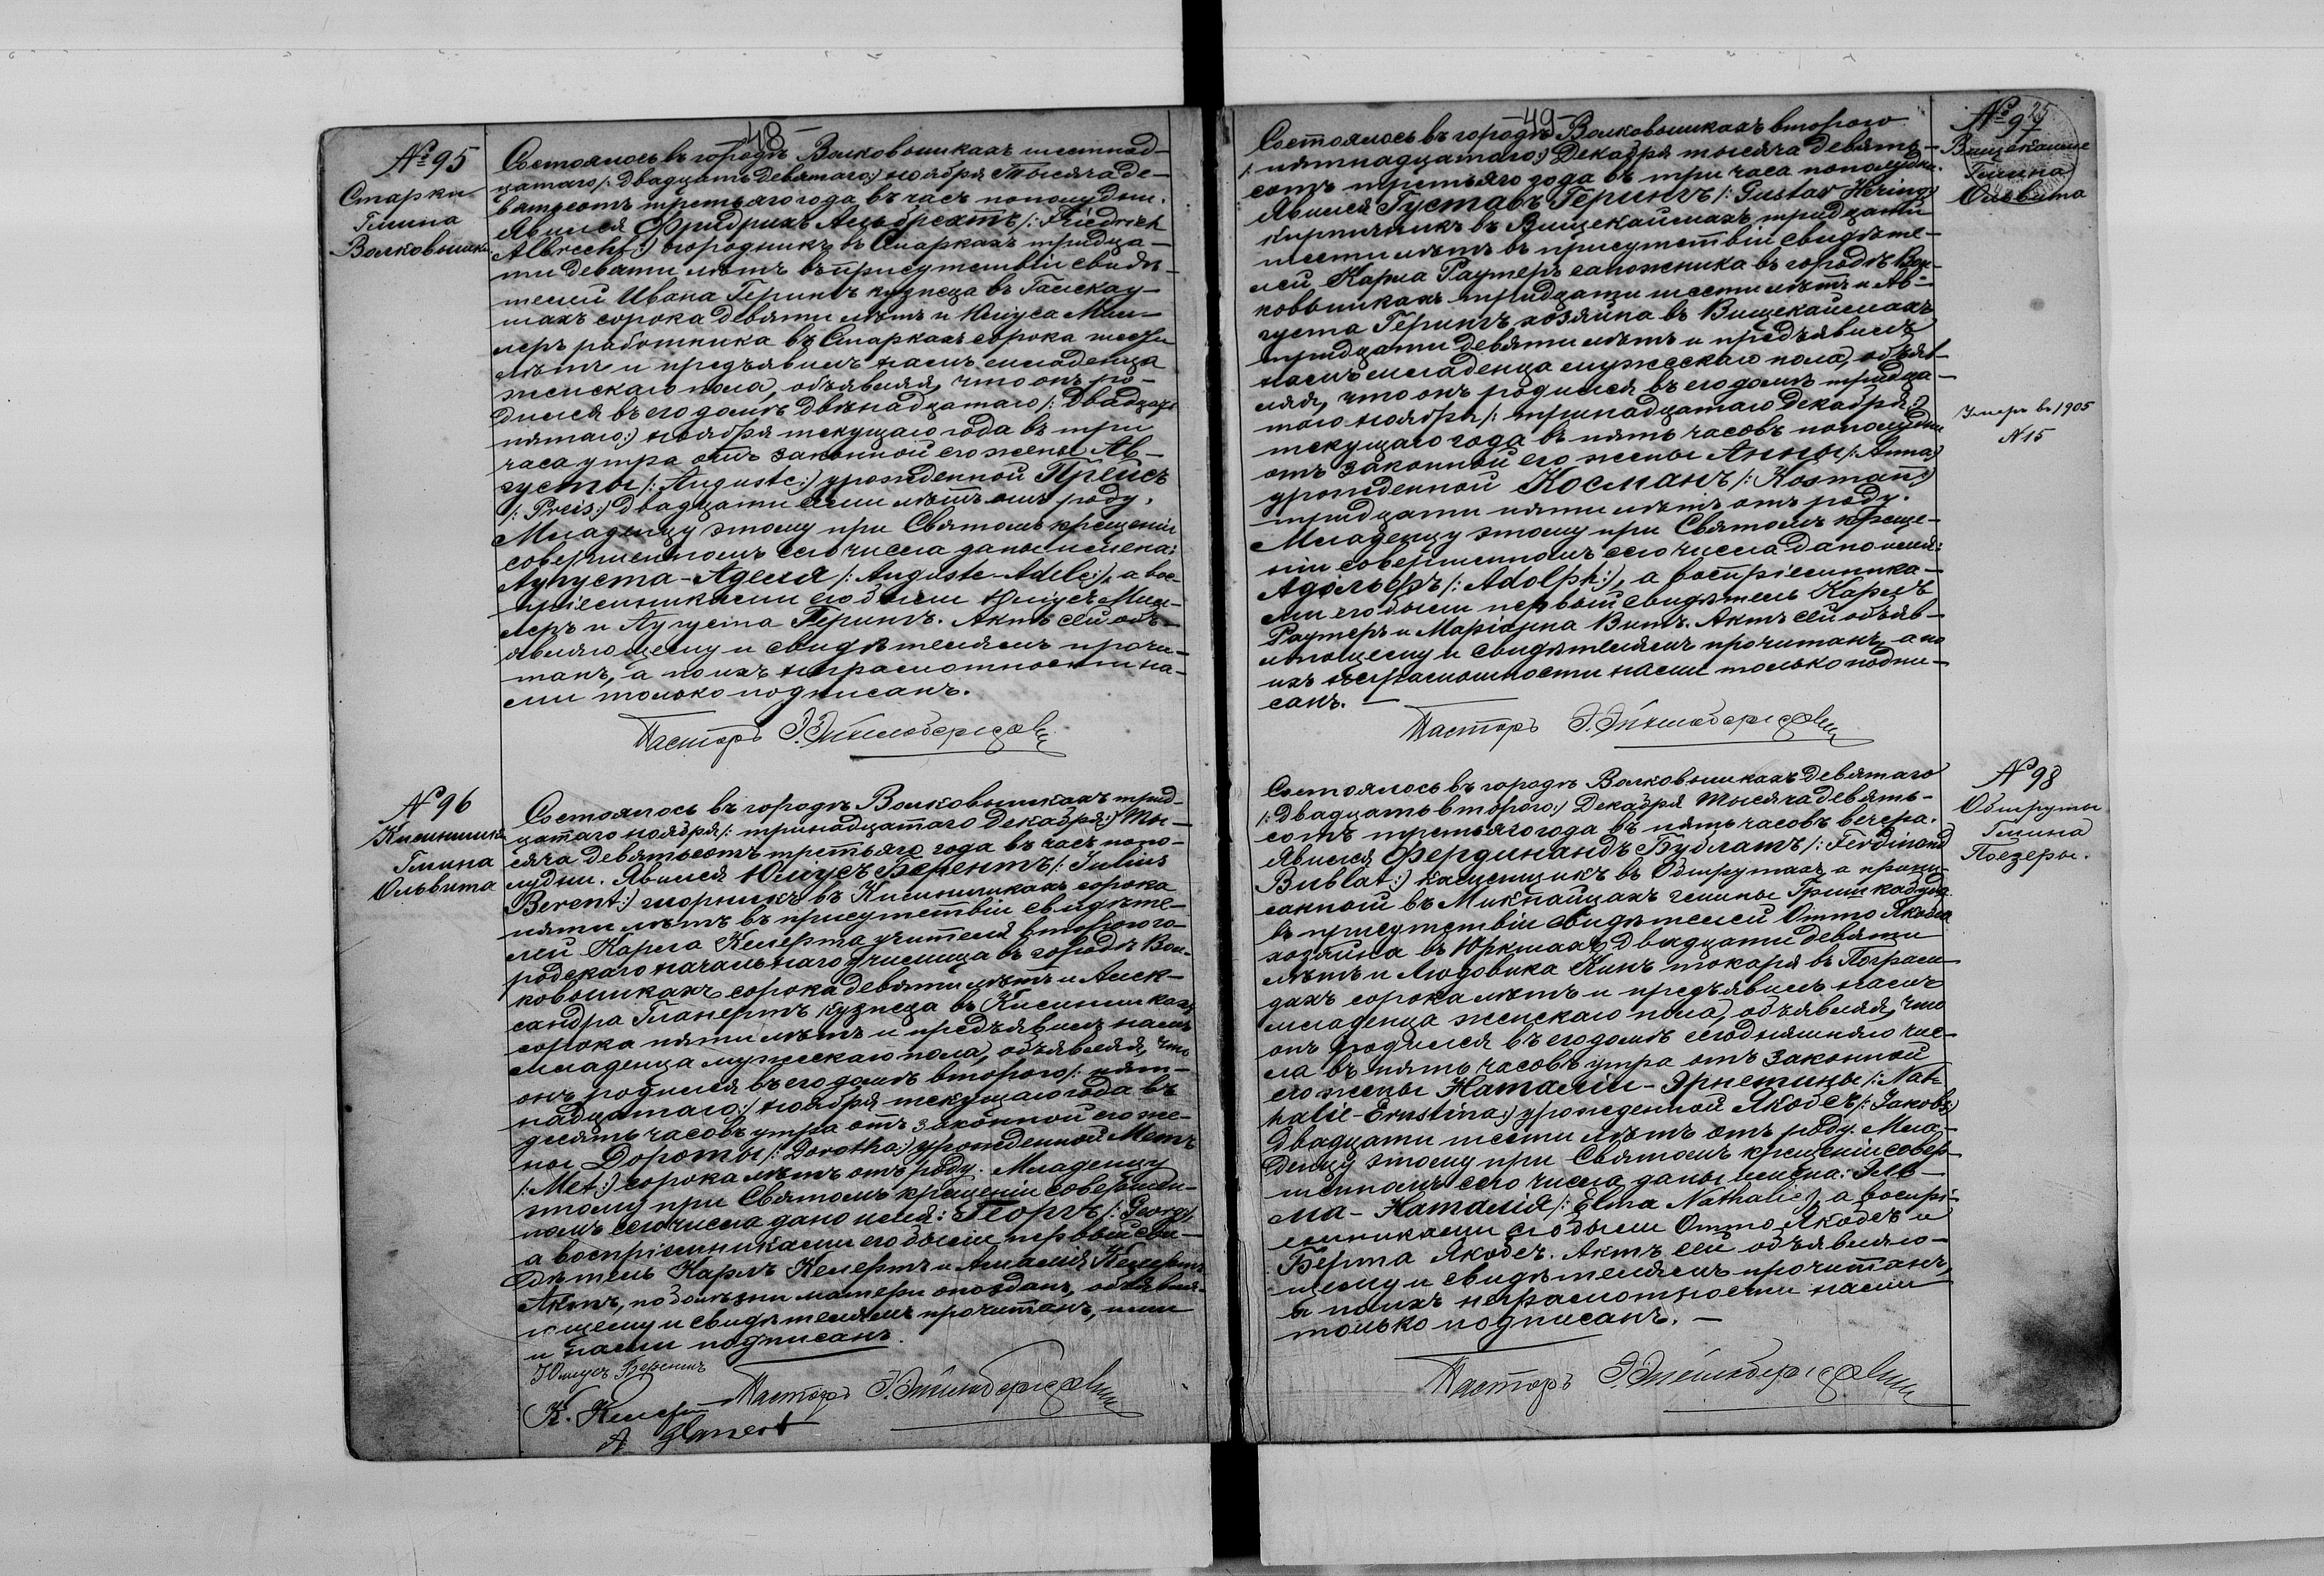 -48-
№ 95
Старки
Гмина
Волковышки
Состоялось въ городѣ Волковышкахъ шестнад-
цатаго /: двадцать девятаго :/ ноября тысяча де-
вятьсотъ третьяго года въ часъ пополудни.
Явился Фридрихъ Альбрехтъ /: Friedrich
Albrecht :/ огородникъ въ Старкахъ тридца-
ти девяти лѣтъ въ присутствіи свидѣ-
телей Ивана Герингъ кузнеца въ
сорока девяти лѣтъ и Юліуса Мил-
леръ работника въ Старкахъ сорока шести
лѣтъ и предъявилъ намъ младенца
женскаго пола, объявляя, что онъ ро-
дился въ его домѣ двѣнадцатаго /: двадцать
пятаго :/ ноября текущаго года въ три
часа утра отъ законной его жены Ав-
густы /: Auguste :/ урожденной Прейсъ
/: Preis :/ двадцати семи лѣтъ отъ роду.
Младенцу этому при Святомъ крещеніи
совершенномъ сего числа даны имена:
Августа-Аделя /: Auguste-Adele :/, а вос-
пріемниками его были Юліусъ Мил-
леръ и Августа Герингъ. Актъ сей объ-
являющему и свидѣтелямъ прочи-
танъ, а по ихъ неграмотности на-
ми только подписанъ.
Пасторъ
№ 96
Гмина
Ольвита
Состоялось въ городѣ Волковышкахъ трид-
цатаго ноября /: тринадцатаго Декабря :/ ты-
сяча девятьсотъ третьяго года въ часъ попо-
лудни. Явился Юліусъ Берентъ /: Julius
Berent :/ въ сорока
пяти лѣтъ въ присутствіи свидѣте-
лей Карла Келерта учителя второго го-
родскаго начальнаго училища въ городѣ Вол-
ковышкахъ сорока девяти лѣтъ и Алек-
сандра Гланертъ кузнеца въ
сорока пяти лѣтъ и предъявилъ намъ
младенца мужескаго пола, объявляя, что
онъ родился въ его домѣ второго /: пят-
надцатаго :/ ноября текущаго года въ
десять часовъ утра отъ законной его же-
ны Дороты /: Dorotha :/ урожденной Метъ
/: Met :/ сорока лѣтъ отъ роду. Младенцу
этому при Святомъ крещеніи совершен-
номъ сего числа дано имя: Георгъ /: Georg :/,
а воспріемниками его были первый сви-
дѣтель Карлъ Келертъ и Амалія Келертъ.
Актъ, по болѣзни матери опозданъ, объявля-
ющему и свидѣтелямъ прочитанъ, ими
и нами подписанъ.
Юлиусъ Берентъ
Пасторъ
К. Келертъ
A Glanert
-49-
25
№ 97
Гмина
Ольвита
Состоялось въ городѣ Волковышкахъ второго
/: пятнадцатаго :/ Декабря тысяча девять-
сотъ третьяго года въ три часа пополудни.
Явился Густавъ Герингъ /: Gustav Hering :/
кирпичникъ въ тридцати
шести лѣтъ въ присутствіи свидѣте-
лей Карла Раутеръ сапожника въ городѣ Вол-
ковышкахъ тридцати шести лѣтъ и Ав-
густа Герингъ хозяина въ
тридцати девяти лѣтъ и предъявилъ
намъ младенца мужескаго пола, объяв-
ляя, что онъ родился въ его домѣ тридца-
таго ноября /: тринадцатаго Декабря :/
текущаго года въ пять часовъ пополудни
отъ законной его жены Анны /: Anna :/
урожденной Косманъ /: Kosmann :/
тридцати пяти лѣтъ отъ роду.
Младенцу этому при Святомъ креще-
ніи совершенномъ сего числа дано имя:
Адольфъ /: Adolph :/, а воспріемника-
ми его были первый свидѣтель Карлъ
Раутеръ и Маріанна Витъ. Актъ сей объяв-
ляющему и свидѣтелямъ прочитанъ, а по
ихъ неграмотности нами только подпи-
санъ. —
Умеръ въ 1905
N 15
Пасторъ
№ 98
Обшруты
Гмина
Поезеры.
Состоялось въ городѣ Волковышкахъ девятаго
/: двадцать второго :/ Декабря тысяча девять-
сотъ третьяго года въ пять часовъ вечера.
Явился Фердинандъ Бублатъ /: Ferdinand
Bublat :/ каменщикъ въ Обшрутахъ а припи-
санной въ гмины
въ присутствіи свидѣтелей Отто Якобса
хозяина въ двадцати девяти
лѣтъ и Людовика Кинъ токаря въ Пограм-
дахъ сорока лѣтъ и предъявилъ намъ
младенца женскаго пола, объявляя, что
онъ родился въ его домѣ сегодняшняго чис-
ла въ пять часовъ утра отъ законной
его жены Наталіи-Эрнестины /: Nat-
halie-Ernstina :/ урожденной Якобсъ /: Jakobs :/
двадцати шести лѣтъ отъ роду. Мла-
денцу этому при Святомъ крещеніи совер-
шенномъ сего числа даны имена: Эль-
ма-Наталія /: Elma Nathalie :/, а воспрі-
емниками его были Отто Якобсъ и
Берта Якобсъ. Актъ сей объявляю-
щему и свидѣтелямъ прочитанъ,
а по ихъ неграмотности нами
только подписанъ. —
Пасторъ